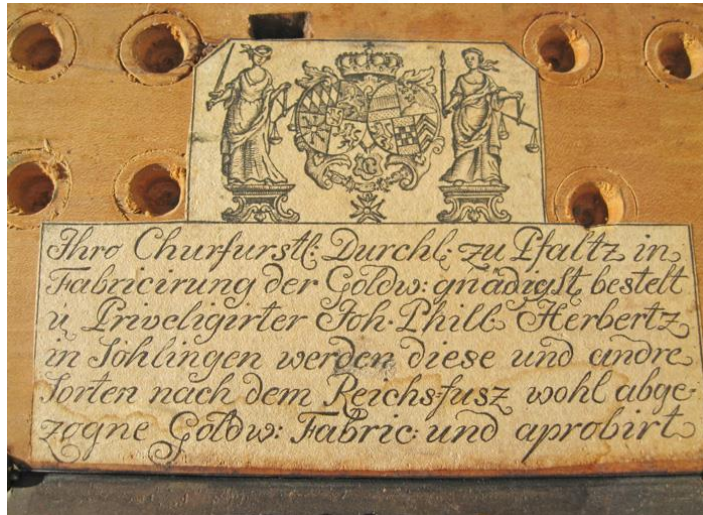 Ihro Churfurstl: Durchl: zu Pfaltz in
Fabricirung der Goldw: gnädigst bestelt
ú Priveligirter Joh. Phill. Herbertz
in Sohlingen werden diese und andre
Sorten nach dem Reichs-fusz wohl abge-
zogne Goldw: Fabric: und aprobirt